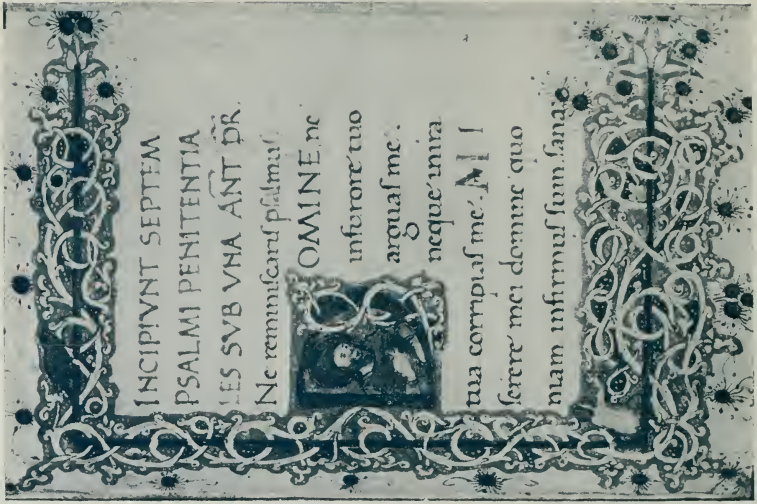 INCIPIVNT SEPTEM
PSALMI PENITENTIA
LES SVB VNA ANT DR̄.
Ne reminiscaris psalmus
OMINE, ne
in furore tuo
arguas me.
neque in ira
tua corripias me. MI
serere mei domine quo
niam infirmus sum. sana